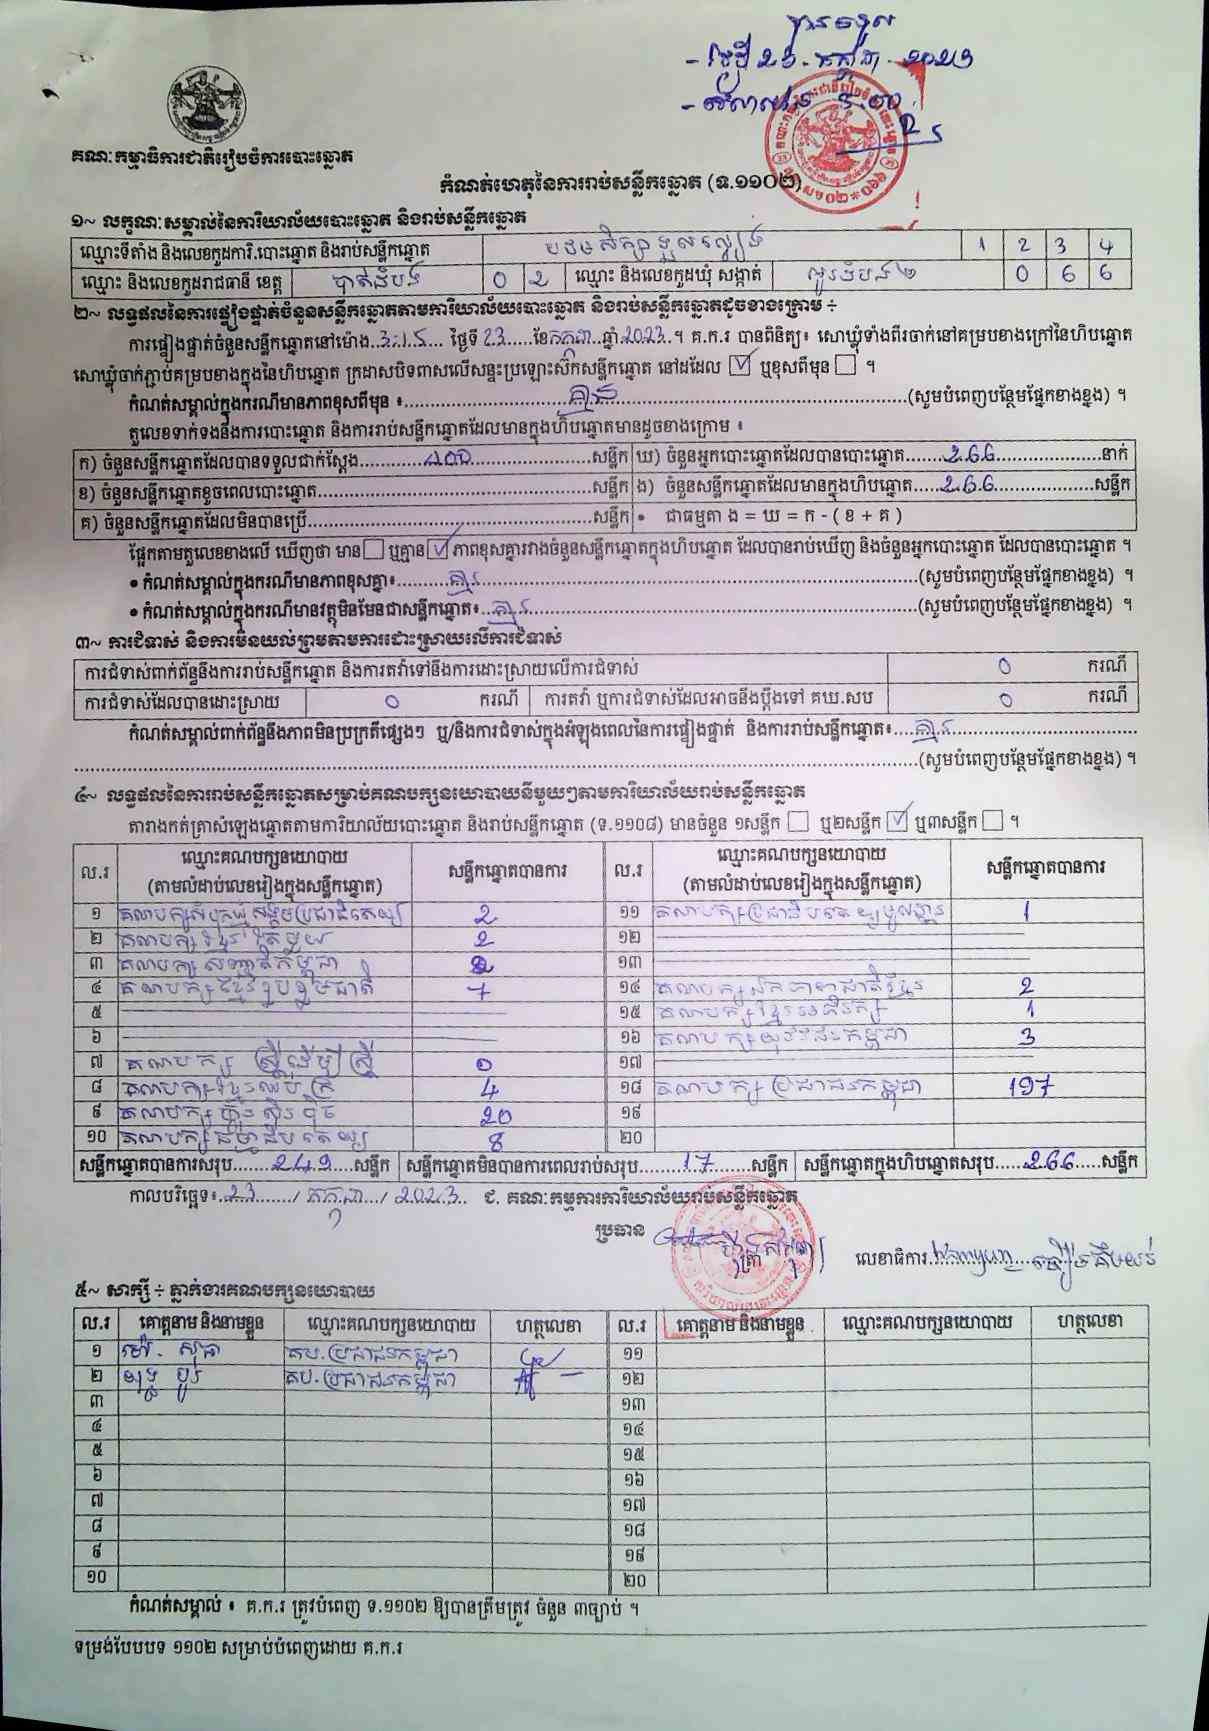 បានទទួល
- ថ្ងៃទី 23 . កក្កដា . 2023
គណៈកម្មាធិការជាតិរៀបចំការបោះឆ្នោត
កំណត់ហេតុនៃការរាប់សន្លឹកឆ្នោត (ទ.១១០២)
១~ លក្ខណៈសម្គាល់នៃការិយាល័យបោះឆ្នោត និងរាប់សន្លឹកឆ្នោត
ឈ្មោះទីតាំង និងលេខកូដការិ.បោះឆ្នោត និងរាប់សន្លឹកឆ្នោត បឋមសិក្សាទួលល្វៀង 1 2 3 4
ឈ្មោះ និងលេខកូដរាជធានី ខេត្ត បាត់ដំបង 0 2 ឈ្មោះ និងលេខកូដឃុំ សង្កាត់ អូរដំបង២ 0 6 6
២~ លទ្ធផលនៃការផ្ទៀងផ្ទាត់ចំនួនសន្លឹកឆ្នោតតាមការិយាល័យបោះឆ្នោត និងរាប់សន្លឹកឆ្នោតដូចខាងក្រោម ÷
ការផ្ទៀងផ្ទាត់ចំនួនសន្លឹកឆ្នោតនៅម៉ោង..3:15.. ថ្ងៃទី 23.....ខែកក្កដា..ឆ្នាំ.2023..។ គ.ក.រ បានពិនិត្យ៖ សោឃ្លុំទាំងពីរចាក់នៅគម្របខាងក្រៅនៃហិបឆ្នោត
សោឃ្លុំចាក់ភ្ជាប់គម្របខាងក្នុងនៃហិបឆ្នោត ក្រដាសបិទពាសលើសន្ទះប្រឡោះស៊កសន្លឹកឆ្នោត នៅដដែល ☑ ឬខុសពីមុន ☐ ។
កំណត់សម្គាល់ក្នុងករណីមានភាពខុសពីមុន ៖..........គ្មាន..........(សូមបំពេញបន្ថែមផ្នែកខាងខ្នង) ។
តួលេខទាក់ទងនឹងការបោះឆ្នោត និងការរាប់សន្លឹកឆ្នោតដែលមានក្នុងហិបឆ្នោតមានដូចខាងក្រោម ៖
ក) ចំនួនសន្លឹកឆ្នោតដែលបានទទួលជាក់ស្តែង..........400..........សន្លឹក ឃ) ចំនួនអ្នកបោះឆ្នោតដែលបានបោះឆ្នោត......266..........នាក់
ខ) ចំនួនសន្លឹកឆ្នោតខូចពេលបោះឆ្នោត..........សន្លឹក ង) ចំនួនសន្លឹកឆ្នោតដែលមានក្នុងហិបឆ្នោត......266..........សន្លឹក
គ) ចំនួនសន្លឹកឆ្នោតដែលមិនបានប្រើ..........សន្លឹក • ជាធម្មតា ង = ឃ = ក - ( ខ + គ )
ផ្អែកតាមតួលេខខាងលើ ឃើញថា មាន ☐ ឬគ្មាន ☑ ភាពខុសគ្នារវាងចំនួនសន្លឹកឆ្នោតក្នុងហិបឆ្នោត ដែលបានរាប់ឃើញ និងចំនួនអ្នកបោះឆ្នោត ដែលបានបោះឆ្នោត ។
• កំណត់សម្គាល់ក្នុងករណីមានភាពខុសគ្នា៖..........គ្មាន..........(សូមបំពេញបន្ថែមផ្នែកខាងខ្នង) ។
• កំណត់សម្គាល់ក្នុងករណីមានវត្ថុមិនមែនជាសន្លឹកឆ្នោត៖..គ្មាន..........(សូមបំពេញបន្ថែមផ្នែកខាងខ្នង) ។
៣~ ការជំទាស់ និងការមិនយល់ព្រមតាមការដោះស្រាយលើការជំទាស់
ការជំទាស់ពាក់ព័ន្ធនឹងការរាប់សន្លឹកឆ្នោត និងការតវ៉ាទៅនឹងការដោះស្រាយលើការជំទាស់ 0 ករណី
ការជំទាស់ដែលបានដោះស្រាយ 0 ករណី ការតវ៉ា ឬការជំទាស់ដែលអាចនឹងប្តឹងទៅ គឃ.សប 0 ករណី
កំណត់សម្គាល់ពាក់ព័ន្ធនឹងភាពមិនប្រក្រតីផ្សេងៗ ឬ/និងការជំទាស់ក្នុងអំឡុងពេលនៃការផ្ទៀងផ្ទាត់ និងការរាប់សន្លឹកឆ្នោត៖....គ្មាន..........
..........(សូមបំពេញបន្ថែមផ្នែកខាងខ្នង) ។
៤~ លទ្ធផលនៃការរាប់សន្លឹកឆ្នោតសម្រាប់គណបក្សនយោបាយនីមួយៗតាមការិយាល័យរាប់សន្លឹកឆ្នោត
តារាងកត់ត្រាសំឡេងឆ្នោតតាមការិយាល័យបោះឆ្នោត និងរាប់សន្លឹកឆ្នោត (ទ.១១០៨) មានចំនួន ១សន្លឹក ☐ ឬ២សន្លឹក ☑ ឬ៣សន្លឹក ☐ ។
ល.រ ឈ្មោះគណបក្សនយោបាយ (តាមលំដាប់លេខរៀងក្នុងសន្លឹកឆ្នោត) សន្លឹកឆ្នោតបានការ ល.រ ឈ្មោះគណបក្សនយោបាយ (តាមលំដាប់លេខរៀងក្នុងសន្លឹកឆ្នោត) សន្លឹកឆ្នោតបានការ
១ គណបក្សសំបុកឃ្មុំសង្គមប្រជាធិបតេយ្យ 2 ១១ គណបក្សប្រជាធិបតេយ្យមូលដ្ឋាន 1
២ គណបក្សខ្មែរតែមួយ 2 ១២
៣ គណបក្សសញ្ជាតិកម្ពុជា 2 ១៣
៤ គណបក្សខ្មែររួបរួមជាតិ 7 ១៤ គណបក្សឯកភាពជាតិខ្មែរ 2
៥ ១៥ គណបក្សខ្មែរអភិរក្ស 1
៦ ១៦ គណបក្សយុវជនកម្ពុជា 3
៧ គណបក្ស ស្ត្រីដើម្បីស្ត្រី 0 ១៧
៨ គណបក្សខ្មែរឈប់ក្រ 4 ១៨ គណបក្សប្រជាជនកម្ពុជា 197
៩ គណបក្សហ៊្វុនស៊ិនប៉ិច 20 ១៩
១០ គណបក្សធម្មាធិបតេយ្យ 8 ២០
សន្លឹកឆ្នោតបានការសរុប......249....សន្លឹក សន្លឹកឆ្នោតមិនបានការពេលរាប់សរុប......17......សន្លឹក សន្លឹកឆ្នោតក្នុងហិបឆ្នោតសរុប......266....សន្លឹក
កាលបរិច្ឆេទ៖..23....../ កក្កដា / 2023.. ជ. គណៈកម្មការការិយាល័យរាប់សន្លឹកឆ្នោត
ប្រធាន
ត្រា លេខាធិការ
៥~ សាក្សី ÷ ភ្នាក់ងារគណបក្សនយោបាយ
ល.រ គោត្តនាម និងនាមខ្លួន ឈ្មោះគណបក្សនយោបាយ ហត្ថលេខា ល.រ គោត្តនាម និងនាមខ្លួន ឈ្មោះគណបក្សនយោបាយ ហត្ថលេខា
១ គប.ប្រជាជនកម្ពុជា ១១
២ គប.ប្រជាជនកម្ពុជា ១២
៣ ១៣
៤ ១៤
៥ ១៥
៦ ១៦
៧ ១៧
៨ ១៨
៩ ១៩
១០ ២០
កំណត់សម្គាល់ ៖ គ.ក.រ ត្រូវបំពេញ ទ.១១០២ ឱ្យបានត្រឹមត្រូវ ចំនួន ៣ច្បាប់ ។
ទម្រង់បែបបទ ១១០២ សម្រាប់បំពេញដោយ គ.ក.រ